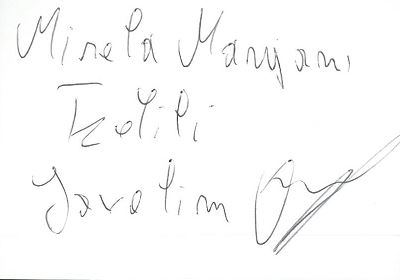 Mirela Manjani
Tzelili
Javelin